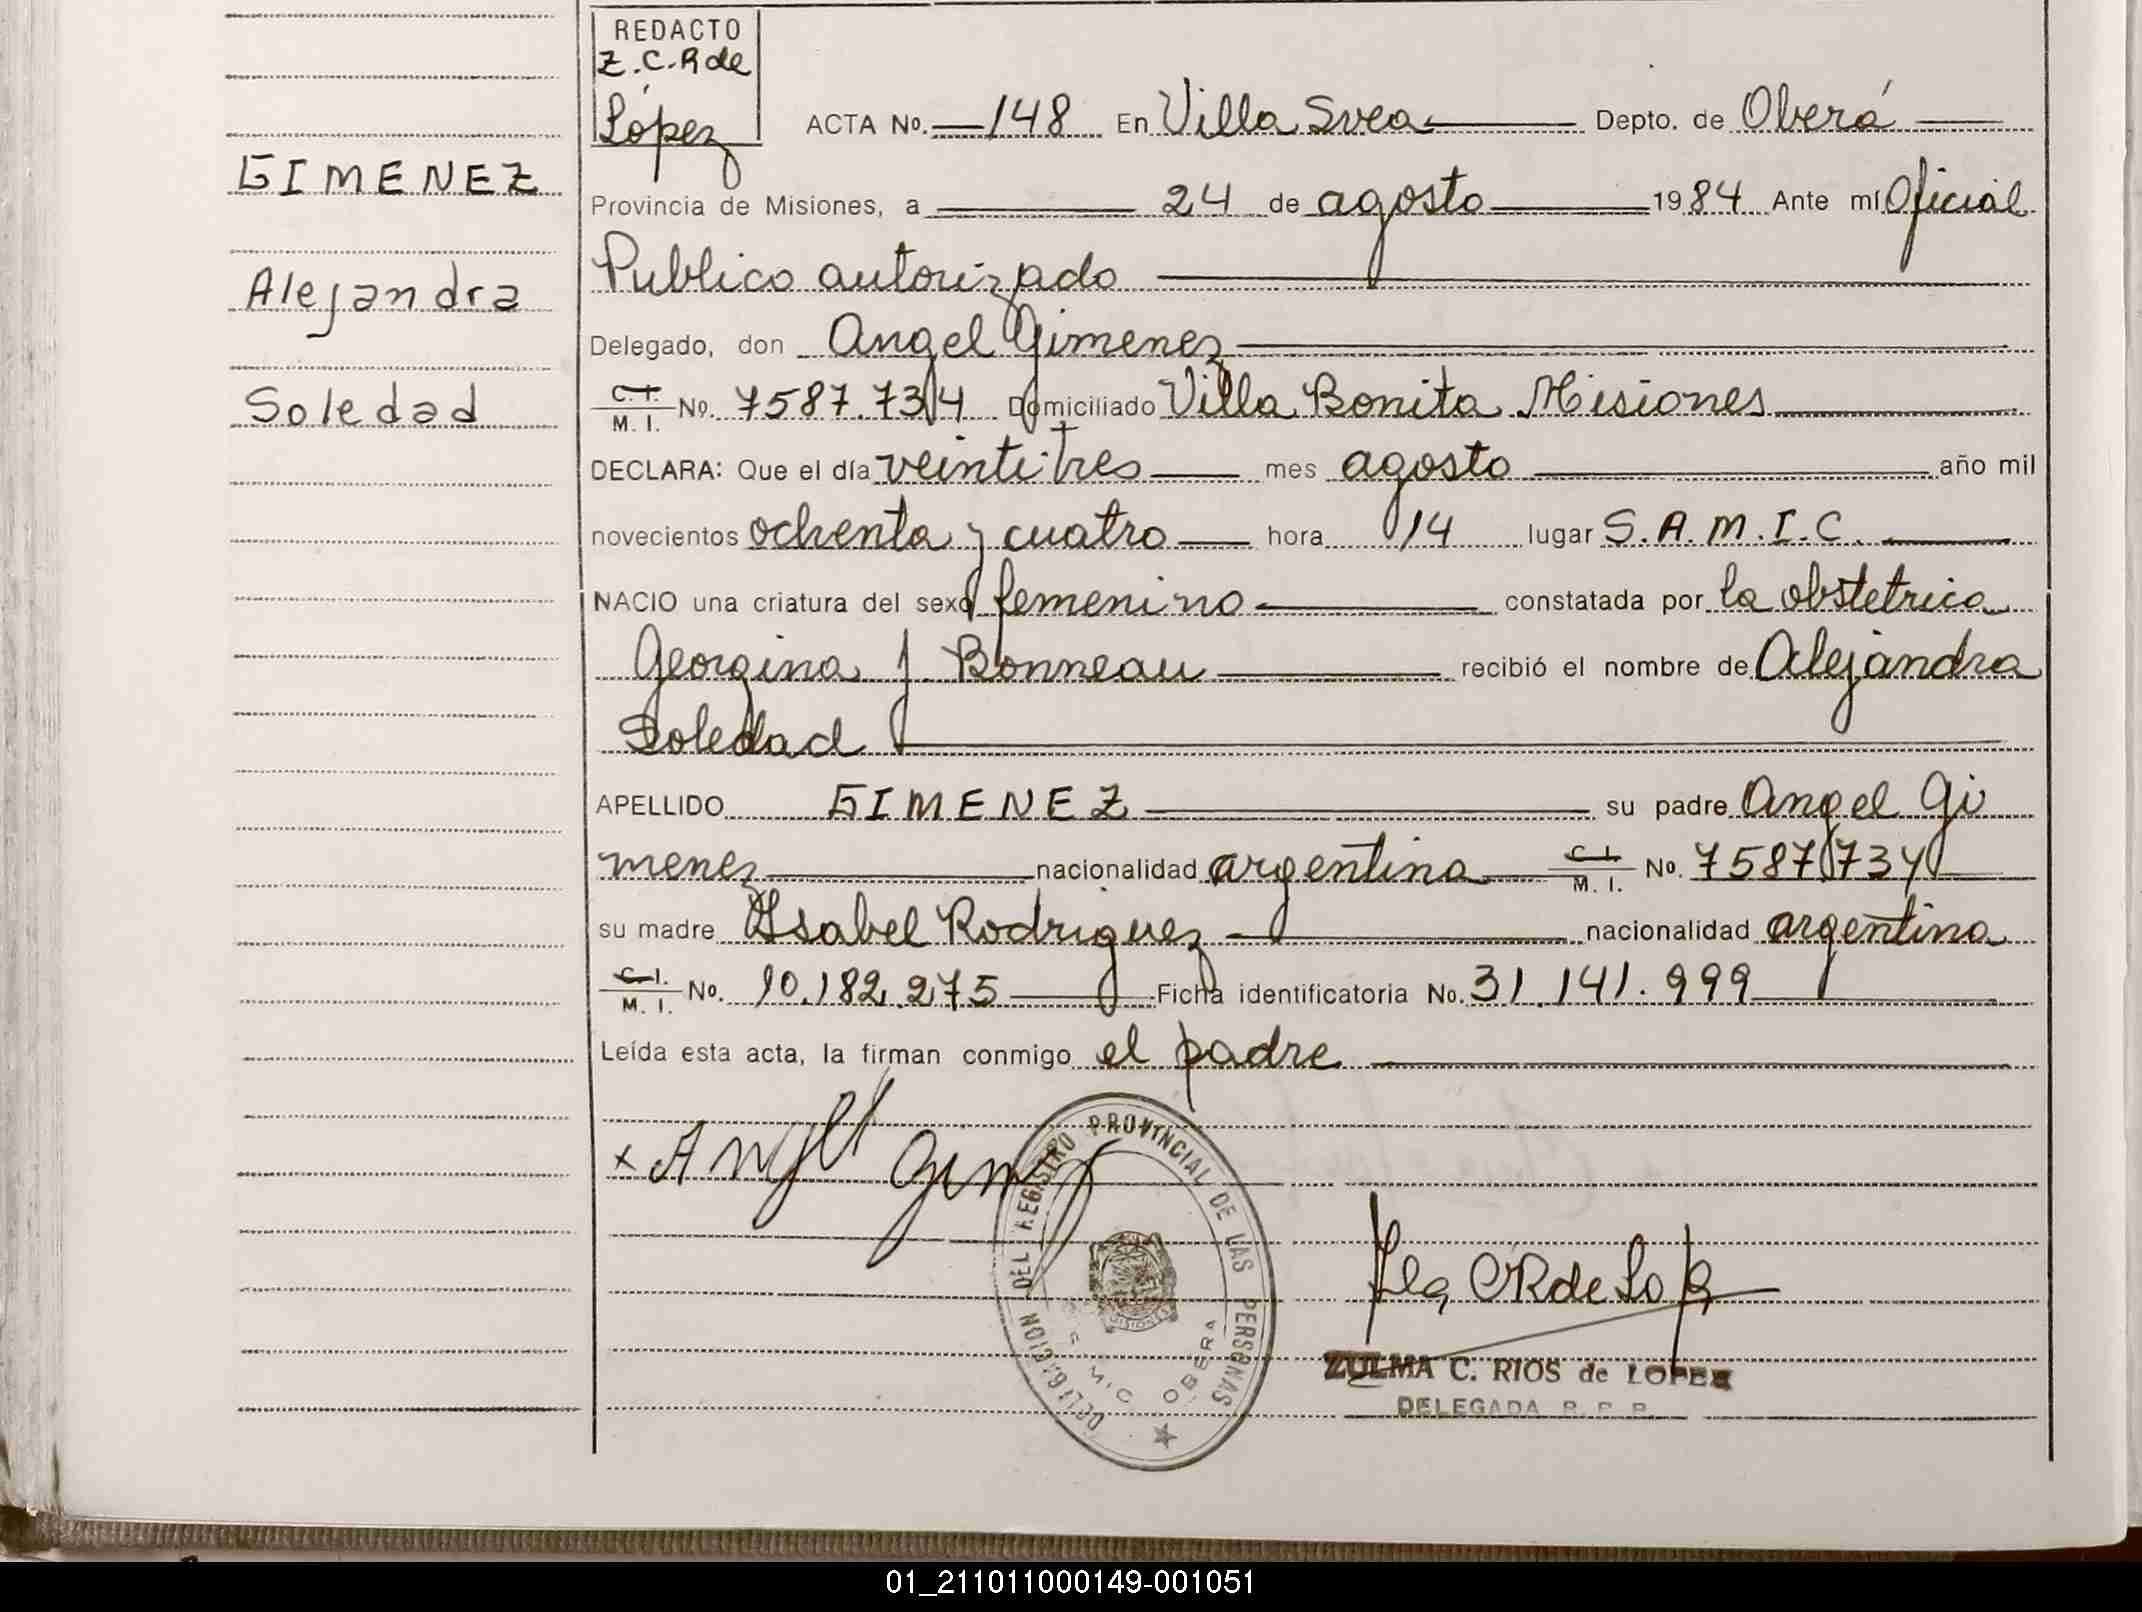 REDACTO
Z. C. R de
López
ACTA No. 148 En Villa Svea Depto. de Oberá
GIMENEZ
Provincia de Misiones, a 24 de agosto 1984 Ante mí Oficial
Publico autorizado
Alejandra
Delegado, don Angel Gimenez
Soledad
C. I. / M. I. No. 7587.734 Domiciliado Villa Bonita Misiones
DECLARA: Que el día veinti tres mes agosto año mil
novecientos ochenta y cuatro hora 14 lugar S.A.M.I.C.
NACIO una criatura del sexo femenino constatada por la obstetrica
Georgina J. Bonneau recibió el nombre de Alejandra
Soledad
APELLIDO GIMENEZ su padre Angel Gi
menez nacionalidad argentina C. I. / M. I. No. 7587734
su madre Ysabel Rodriguez nacionalidad argentina
C. I. / M. I. No. 10.182.275 Ficha identificatoria No. 31.141.999
Leída esta acta, la firman conmigo el padre
x Angel Gimenez
DELEGACION DEL REGISTRO PROVINCIAL DE LAS PERSONAS
MISIONES
OBERA
C R de Lopez
ZULMA C. RIOS de LOPEZ
DELEGADA R. P. P.
01_211011000149-001051